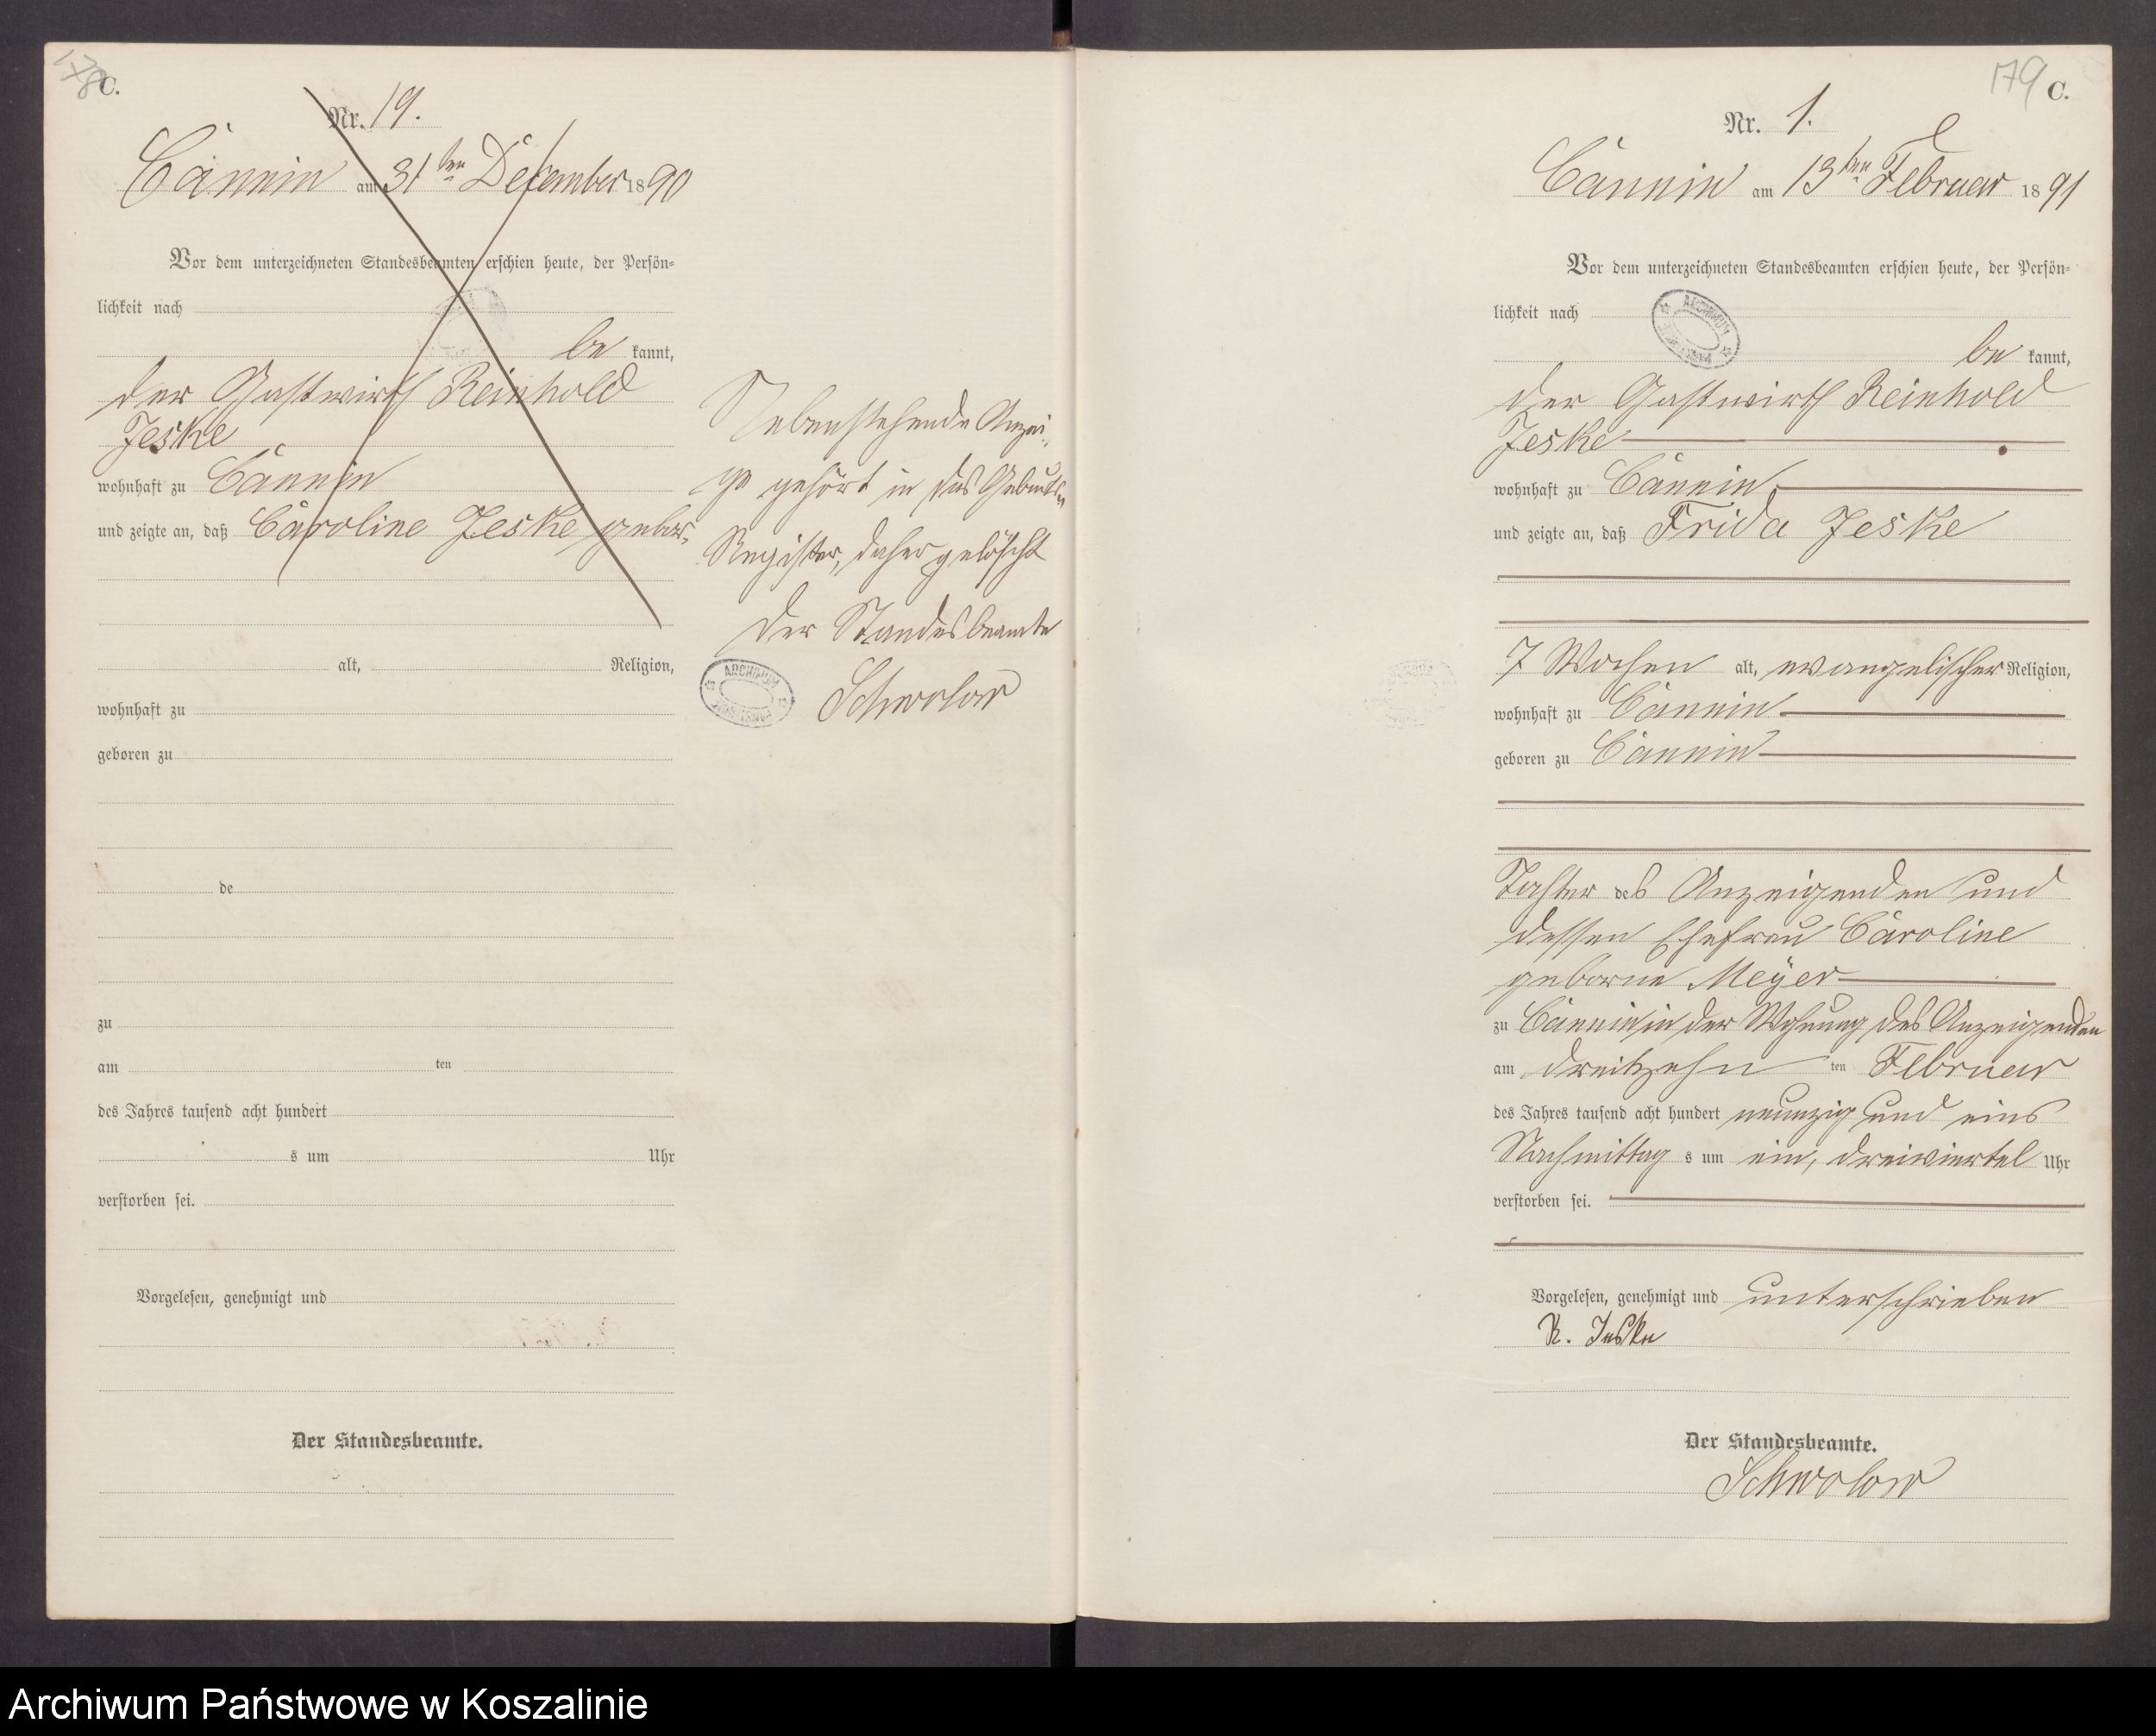 178 C.
Nr. 19.
Cannin am 31ten December 1890
Vor dem unterzeichneten Standesbeamten erschien heute, der Persön-
lichkeit nach
be kannt,
der Gastwirth Reinhold
Jeske
wohnhaft zu Cannin
und zeigte an, daß Caroline Jeske gebor-
alt, Religion,
wohnhaft zu
geboren zu
de
zu
am ten
des Jahres tausend acht hundert
s um Uhr
verstorben sei.
Vorgelesen, genehmigt und
Der Standesbeamte.
Nebenstehende Anzei-
ge gehört in das Geburts-
Register, daher gelöscht
Der Standesbeamte
Schwolow
ARCHIWUM
179 C.
Nr. 1.
Cannin am 13ten Februar 1891
Vor dem unterzeichneten Standesbeamten erschien heute, der Persön-
lichkeit nach
ARCHIWUM
be kannt,
der Gastwirth Reinhold
Jeske
wohnhaft zu Cannin
und zeigte an, daß Frida Jeske
7 Wochen alt, evangelischer Religion,
wohnhaft zu Cannin
geboren zu Cannin
Tochter des Anzeigenden und
dessen Ehefrau Caroline
geborne Meyer
zu Cannin in der Wohnung des Anzeigenden
am dreizehn ten Februar
des Jahres tausend acht hundert neunzig und eins
Nachmittag s um ein, dreiviertel Uhr
verstorben sei.
Vorgelesen, genehmigt und unterschrieben
R. Jeske
Der Standesbeamte.
Schwolow
Archiwum Państwowe w Koszalinie